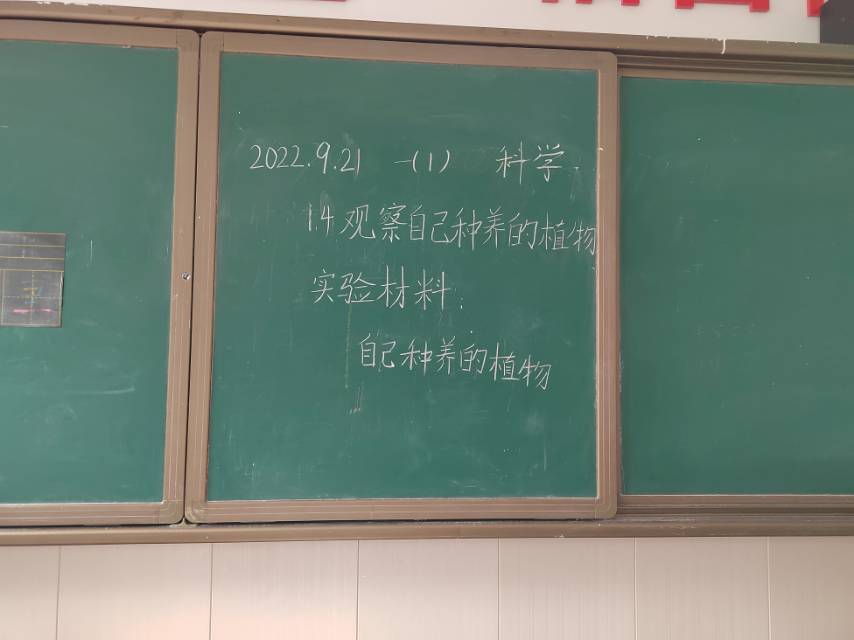 2022.9.21 一(1) 科学
1.4.观察自己种养的植物
实验材料:
自己种养的植物